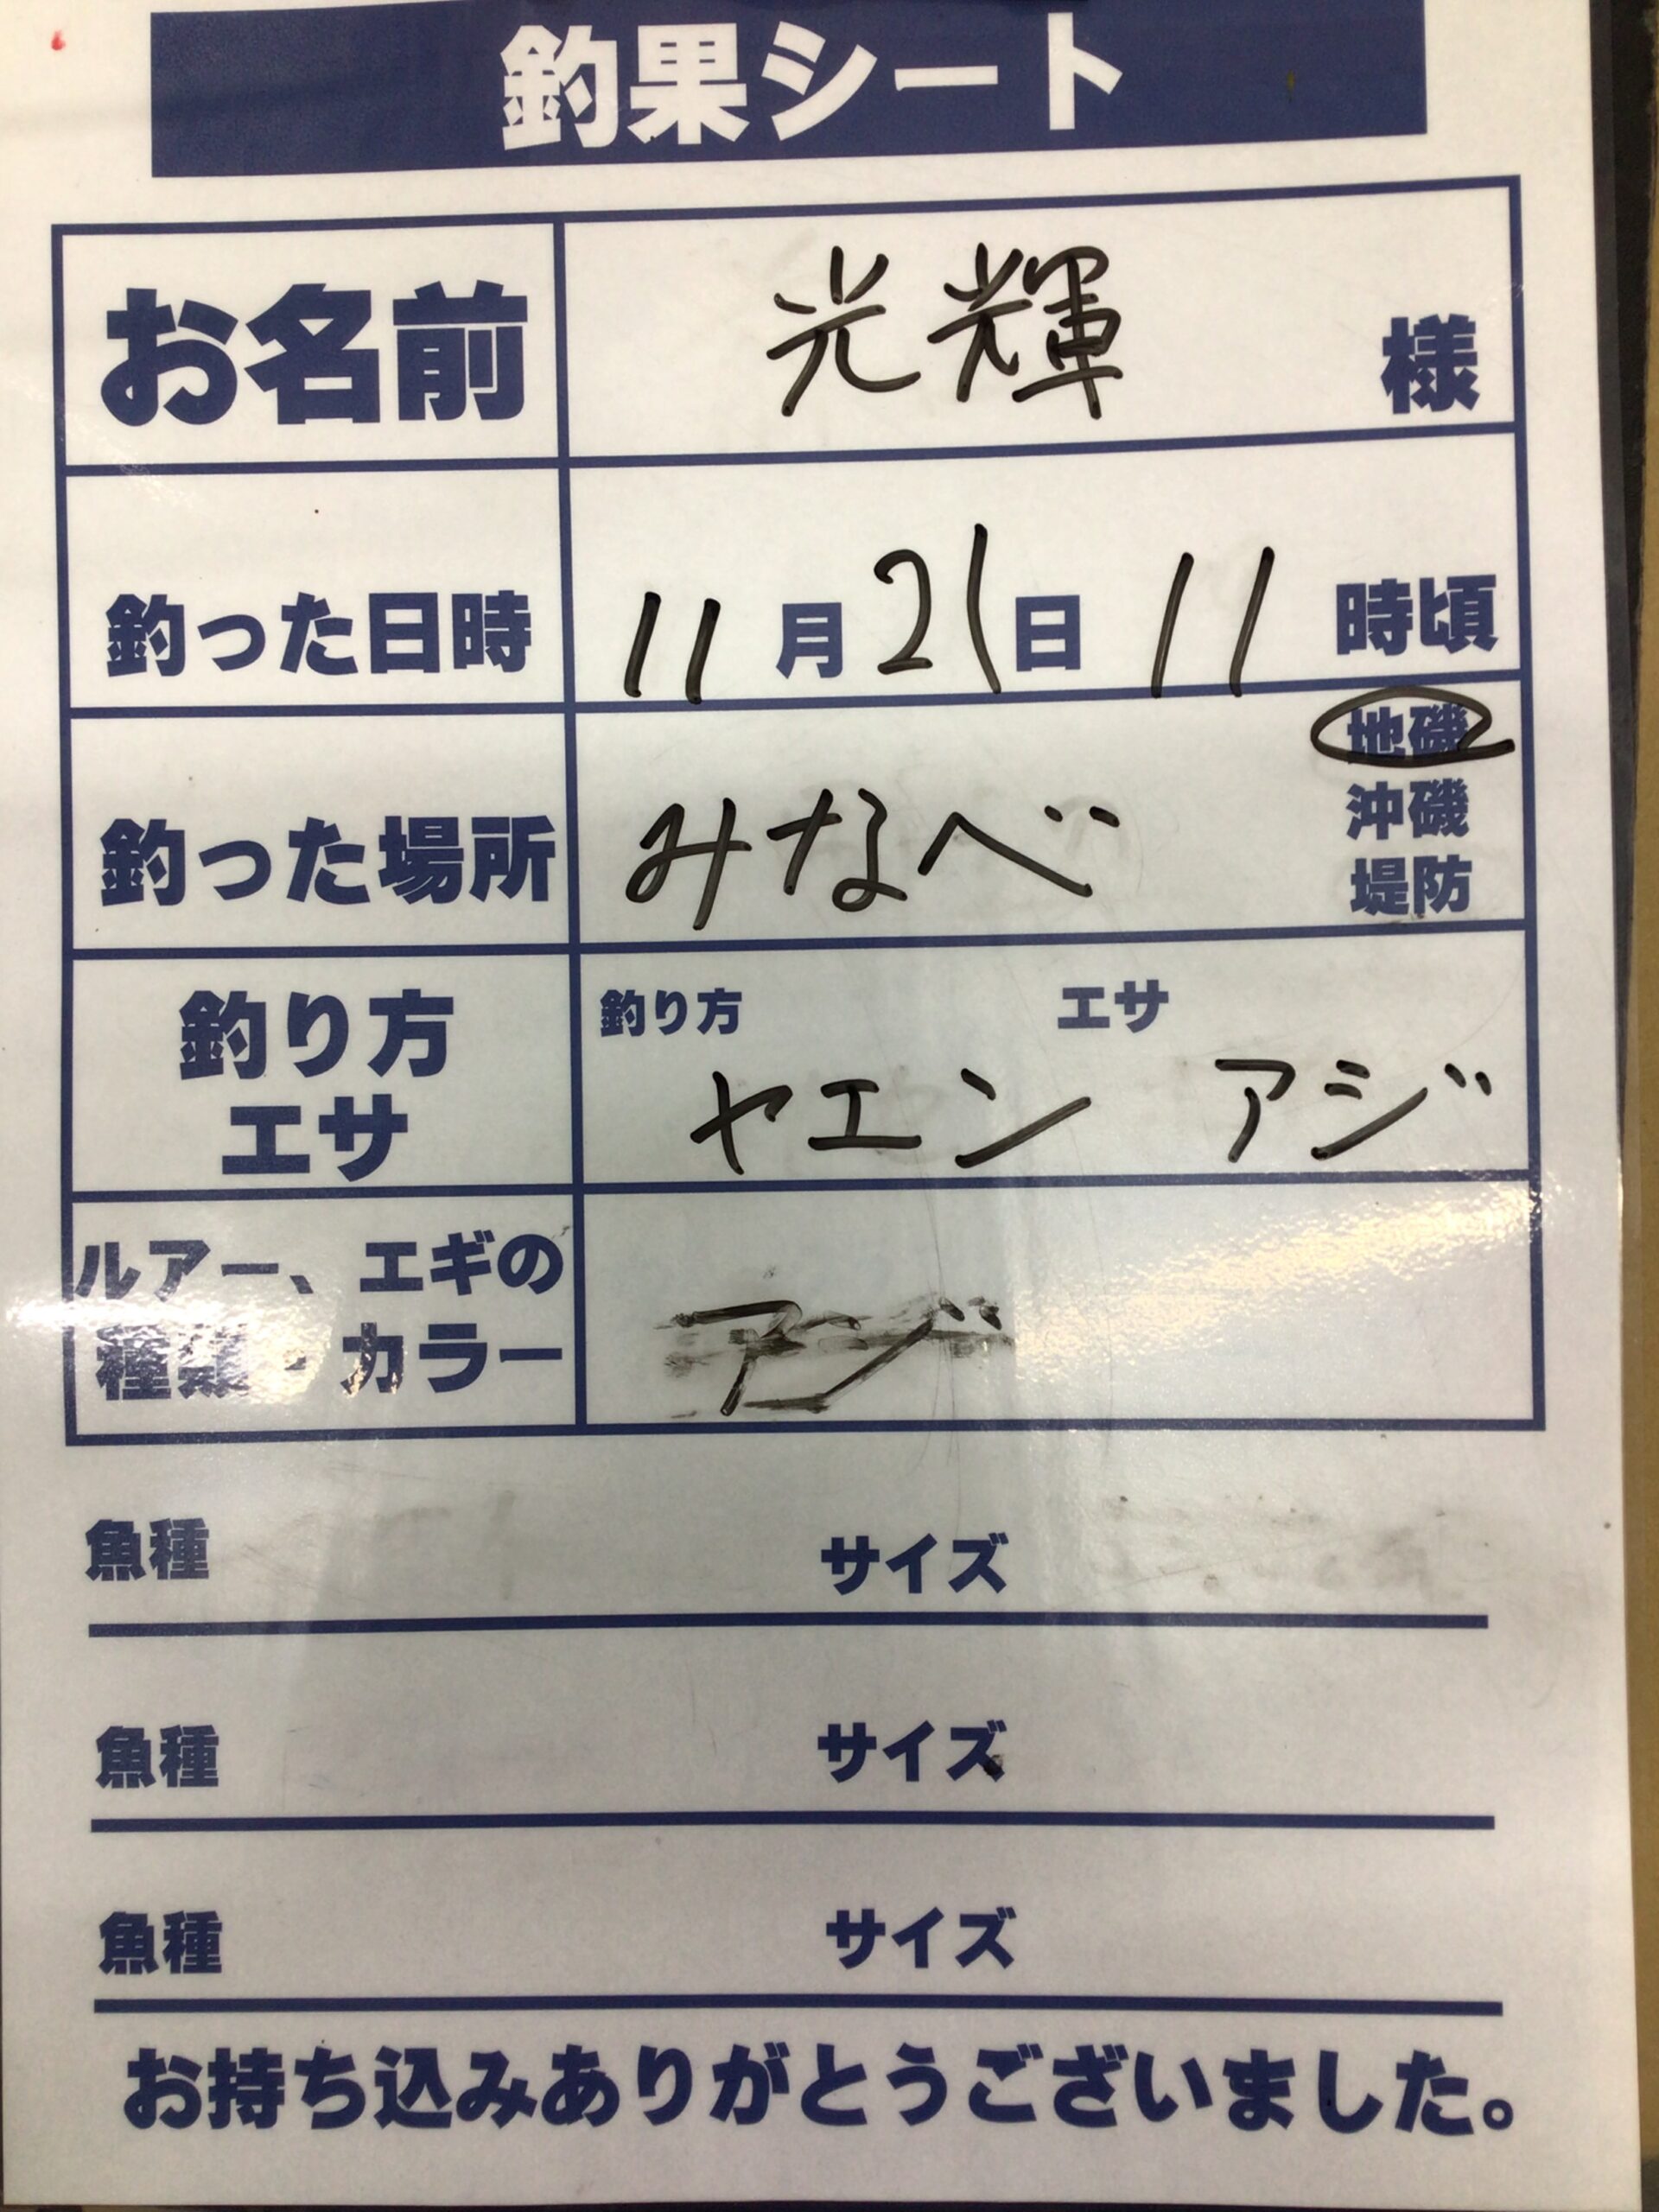 釣果シート
お名前 光輝 様
釣った日時 11月21日 11時頃
釣った場所 みなべ 地磯
沖磯
堤防
釣り方 エサ
釣り方
エサ
ヤエン アジ
ルアー、エギの
種類・カラー
アジ
魚種 サイズ
魚種 サイズ
魚種 サイズ
お持ち込みありがとうございました。